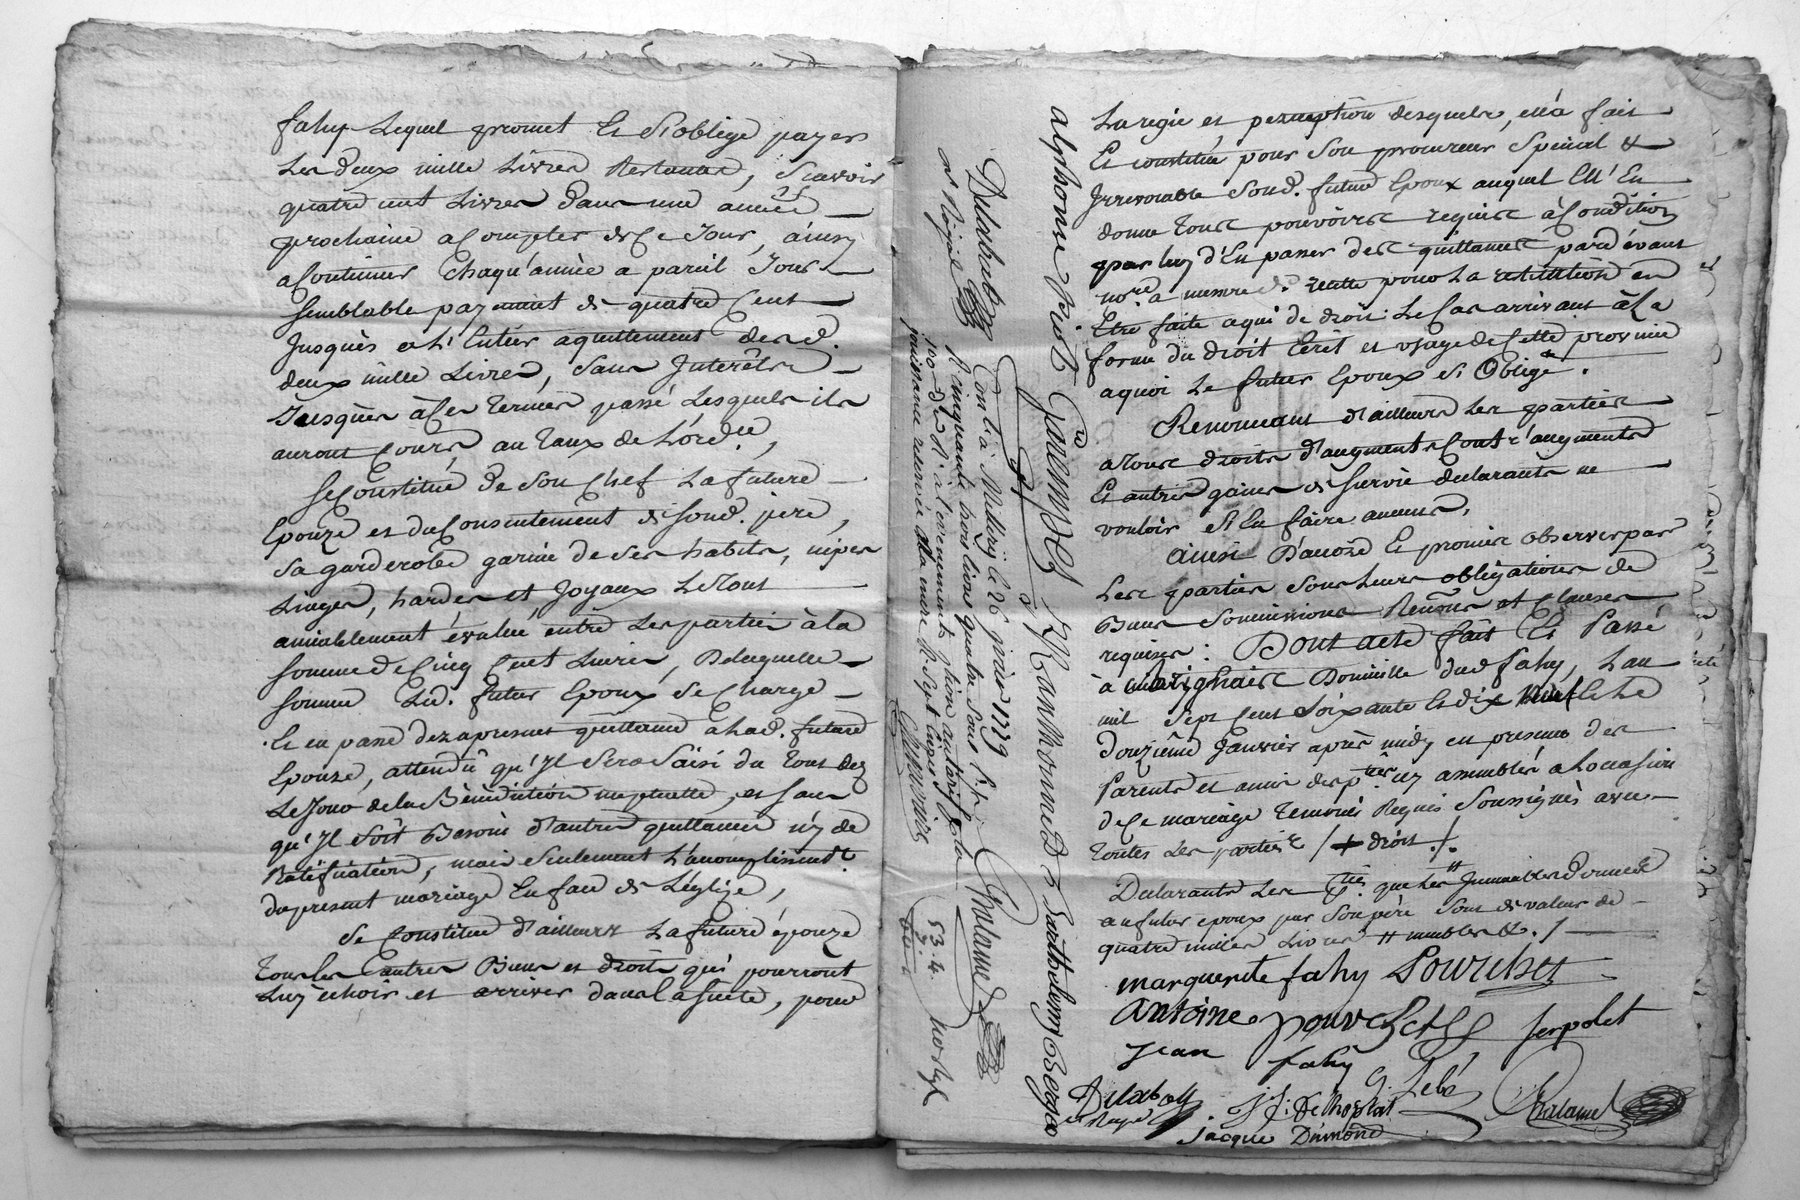 fahy Lequel promet Et S'oblige payer
Les deux mille Livres Restantes, Scavoir
quatre cent Livres dans une année
prochaine a Compter de Ce Jour, ainsy
a Continuer Chaqu'année a pareil Jour
semblable payement de quatre Cent
Jusques a L'Entier aquittement desd.
deux mille Livres, Sans Interêts
Jusques à Ces termes passé Lesquels ils
auront Cours au Taux de L'ordce,
Se Constitue de Son Chef La future
Epouze et du Consentement de Sond. pere,
Sa garderobe garnie de Ses habits, nipes
Linges, hardes et Joyaux Le Tout
amiablement évalué entre Les parties à la
Somme de Cinq Cent Livres, De laquelle
Somme Led. futur Epoux Se Charge
Et en passe dezapresent quittance a lad. future
Epouze, attendu qu'Il Sera Saisi du Tout dez
Le Jour de la Bénédiction nuptialle, et Sans
qu'Il Soit Besoin d'autre quittance n'y de
Ratification, mais Seulement L'accomplissemt
du present mariage En face de L'église,
Se Constitue d'ailleurs La future épouze
Tous Les autres Biens et droits qui pourront
Luy échoir et arriver dans La Suite, pour
La regie et perception desquels, ell'a fait
Et constitué pour Son procureur Special &
Irrevocable Sond. futur Epoux auquel Ell'En
donne Tous pouvoirs requis à Condition
par luy d'En passer des quittances pardevant
nore. a mesure de recette pour La restitution en
Etre faite a qui de droit Le Cas arrivant à La
forme du droit Ecrit et usage de Cette province
a quoi Le futur Epoux S'Oblige.
Renonceant d'ailleurs Les parties
a Tous droits d'augment & Contr'augment
Et autres gains de Survie declarants ne
vouloir S'En faire aucuns,
ainsi D'accord Et promis observer par
Les parties Sous Leurs obligations de
Biens Soumissions Renons. et Clauses
requises : Dont acte fait Et Passé
à Domicille dud fahy, L'an
mil Sept Cent Soixante Et dix neuf Et Le
douzieme Janvier après midy en presence des
Parents et amis des pties icy assemblés a L'occasion
de Ce mariage Temoins Requis Soussignés avec
Toutes Les parties / + droit ./.
Declarants Les pties. que Les # Immeubles donnés
au futur epoux par Son père Sont de valeur de
quatre milles Livres # meubles &. /
marguerite fahy Pourchet
antoine pourchet Serpolet
Jean fahy
G Lebé
Chalamel
Delaball
Jacque Dumond
Delaball
nre Royal
Conlé à le 26 janvier 1779
R cinquante trois livres quatre Sous
jouissance reservée de la mere R Sept livres
Chalamel
53. 4